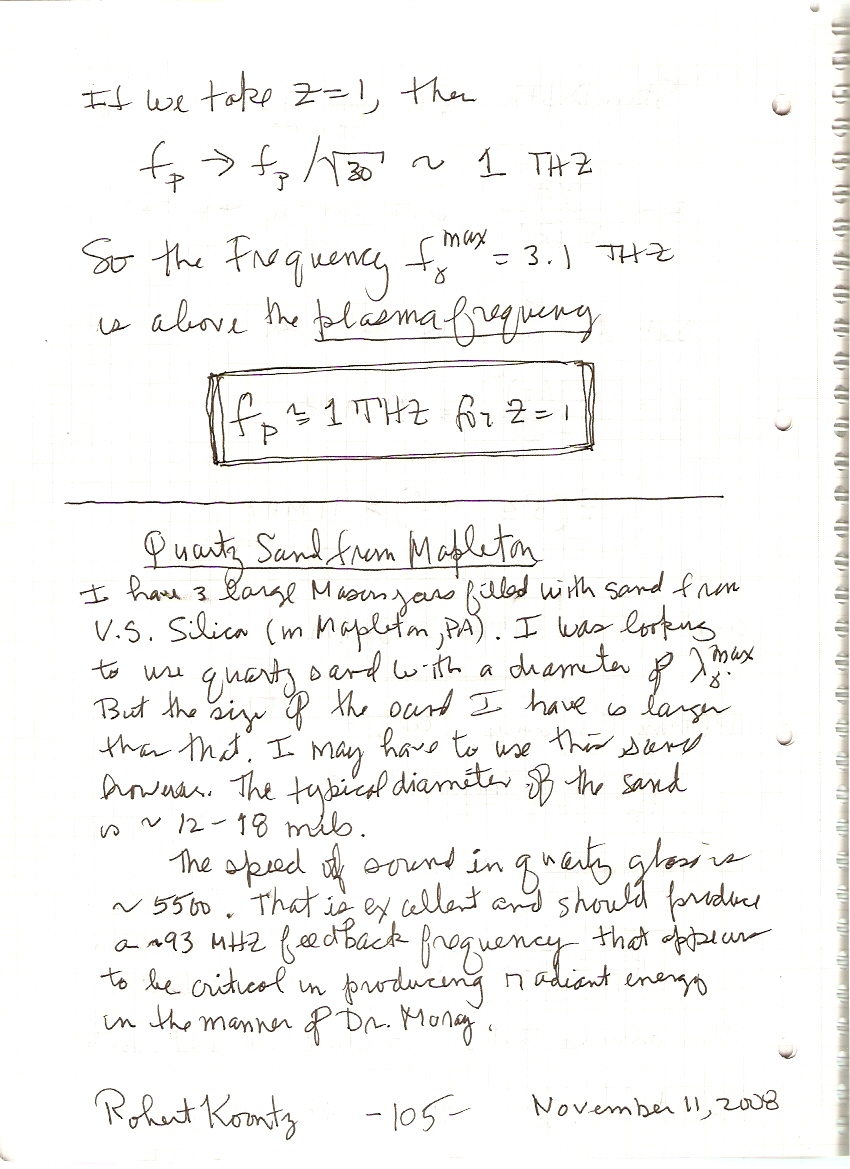 If we take Z=1, then
fp → fp /√30 ~ 1 THZ
So the Frequency fγ^max = 3.1 THZ
is above the plasma frequency
fp ≈ 1 THZ for Z=1
Quartz Sand from Mapleton
I have 3 large Mason jars filled with sand from
U.S. Silica (in Mapleton, PA). I was looking
to use quartz sand with a diameter of λγ^max.
But the size of the sand I have is larger
than that. I may have to use this sand
however. The typical diameter of the sand
is ~ 12-18 mils.
The speed of sound in quartz glass is
~ 5500. That is excellent and should produce
a ~93 MHZ feedback frequency that appears
to be critical in producing radiant energy
in the manner of Dr. Moray.
Robert Koontz -105- November 11, 2008